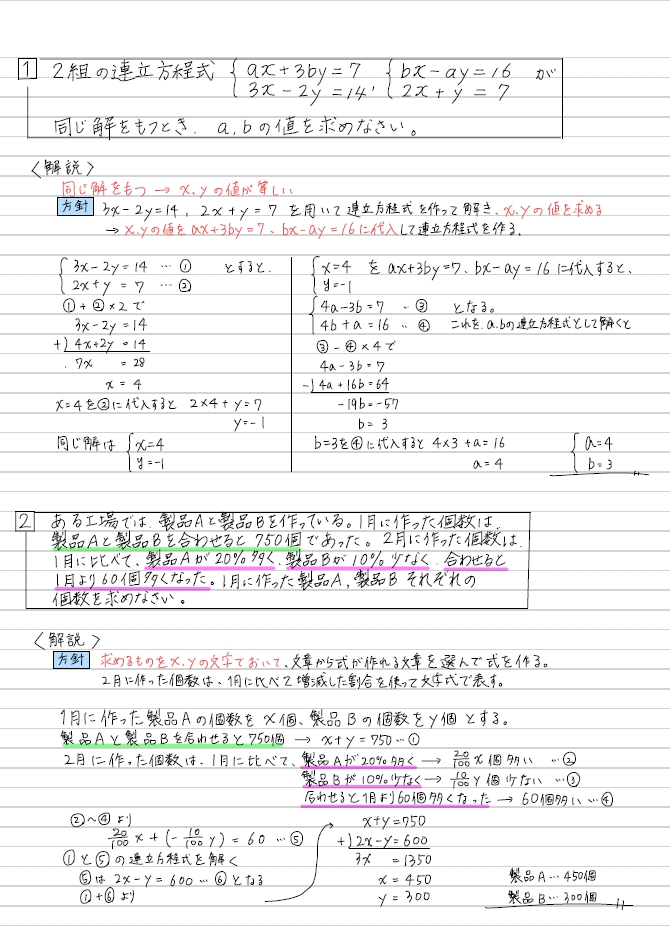 1 2組の連立方程式 { ax+3by=7 { bx-ay=16 が
3x-2y=14, 2x+y=7
同じ解をもつとき、a,bの値を求めなさい。
〈解説〉
同じ解をもつ → x,yの値が等しい
方針 3x-2y=14, 2x+y=7 を用いて連立方程式を作って解き、x,yの値を求める
→ x,yの値をax+3by=7、bx-ay=16に代入して連立方程式を作る.
{ 3x-2y=14 … ① とすると.
2x+y=7 … ②
①+②×2で
3x-2y=14
+) 4x+2y=14
7x =28
x=4
x=4を②に代入すると 2×4+y=7
y=-1
同じ解は { x=4
y=-1
{ x=4 を ax+3by=7、bx-ay=16 に代入すると、
y=-1
{ 4a-3b=7 … ③ となる。
4b+a=16 … ④ これを、a,bの連立方程式として解くと
③-④×4で
4a-3b=7
-) 4a+16b=64
-19b=-57
b=3
b=3を④に代入すると 4×3+a=16
a=4
{ a=4
b=3
2 ある工場では、製品Aと製品Bを作っている。1月に作った個数は、
製品Aと製品Bを合わせると750個であった。2月に作った個数は、
1月に比べて、製品Aが20%多く、製品Bが10%少なく、合わせると
1月より60個多くなった。1月に作った製品A,製品Bそれぞれの
個数を求めなさい。
〈解説〉
方針 求めるものをx,yの文字でおいて、文章から式が作れる文章を選んで式を作る。
2月に作った個数は、1月に比べて増減した割合を使って文字式で表す。
1月に作った製品Aの個数をx個、製品Bの個数をy個とする。
製品Aと製品Bを合わせると750個 → x+y=750…①
2月に作った個数は、1月に比べて、製品Aが20%多く → 20/100 x個多い …②
製品Bが10%少なく → 10/100 y個少ない …③
合わせると1月より60個多くなった → 60個多い …④
②~④より
20/100 x+(-10/100 y)=60 …⑤
①と⑤の連立方程式を解く
⑤は 2x-y=600 … ⑥となる
①+⑥より
x+y=750
+) 2x-y=600
3x =1350
x=450
y=300
製品A…450個
製品B…300個